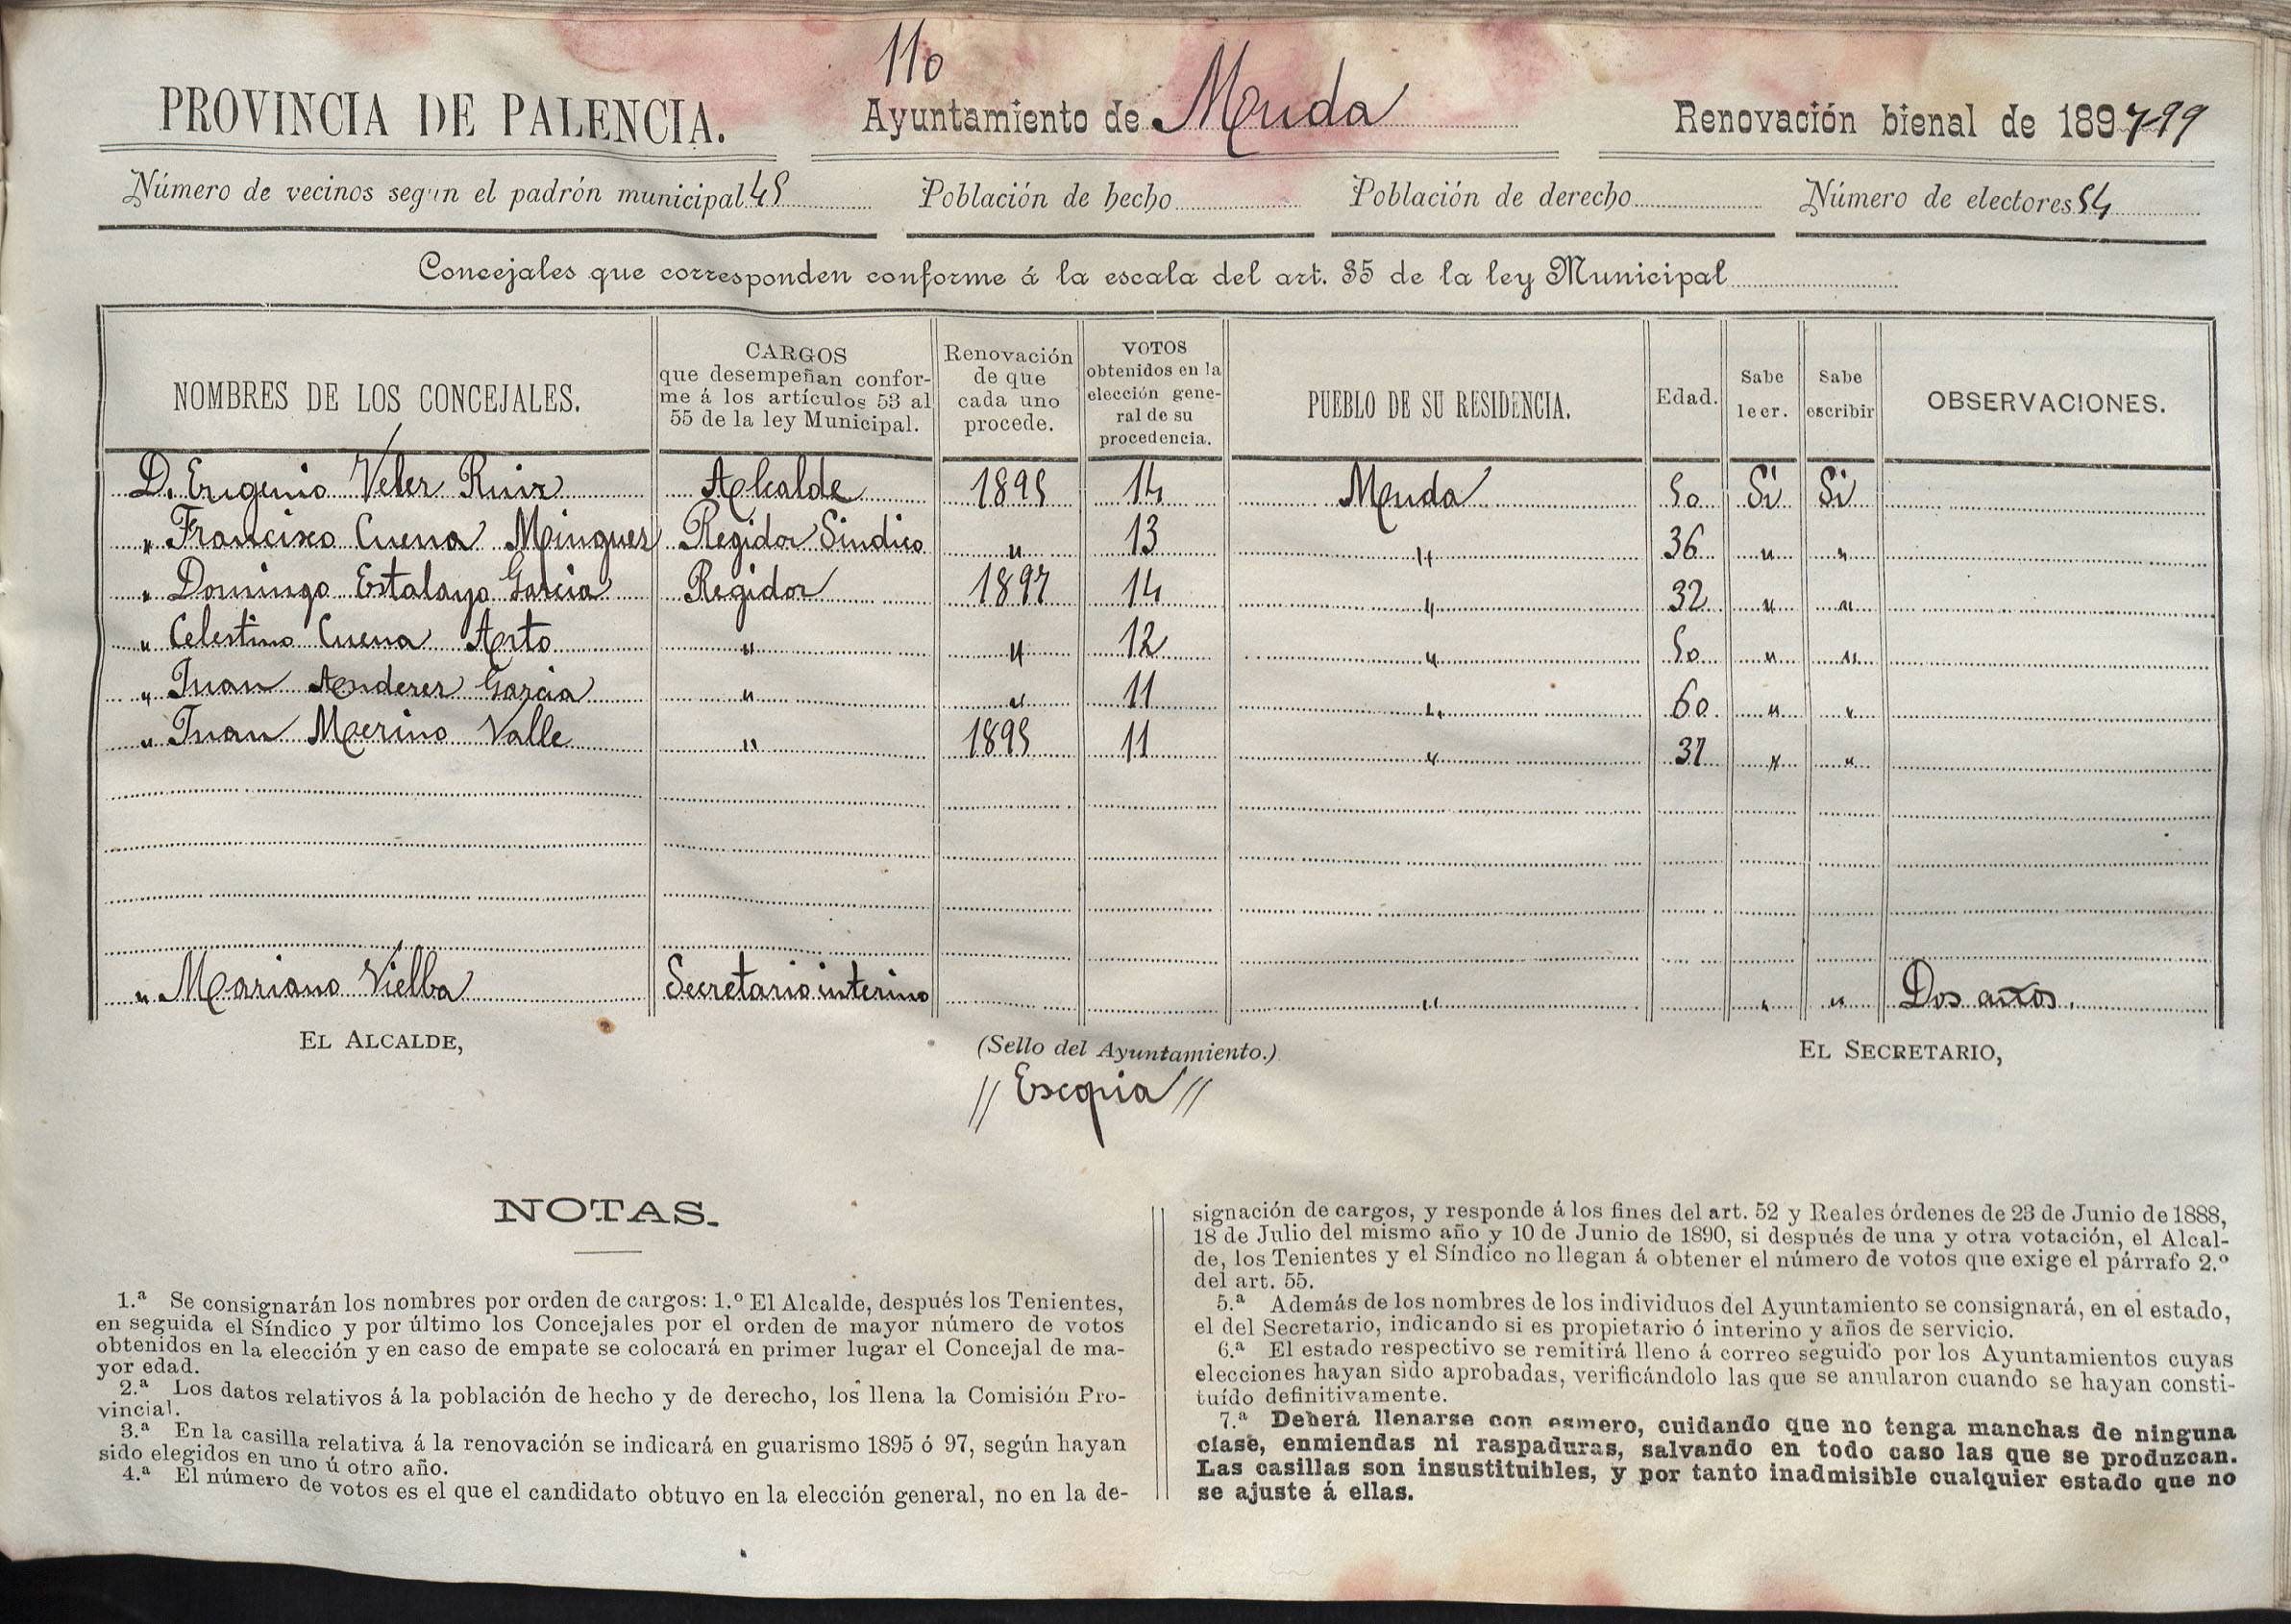 110
PROVINCIA DE PALENCIA. Ayuntamiento de Muda Renovación bienal de 1897-99
Número de vecinos según el padrón municipal 45 Población de hecho Población de derecho Número de electores 54
Concejales que corresponden conforme á la escala del art. 35 de la ley Municipal
NOMBRES DE LOS CONCEJALES. CARGOS que desempeñan conforme á los artículos 53 al 55 de la ley Municipal. Renovación de que cada uno procede. VOTOS obtenidos en la elección general de su procedencia. PUEBLO DE SU RESIDENCIA. Edad. Sabe leer. Sabe escribir OBSERVACIONES.
D. Eugenio Velez Ruiz Alcalde 1895 14 Muda 50 Si Si
" Francisco Cuena Minguez Regidor Sindico " 13 " 36 " "
" Domingo Estalayo Garcia Regidor 1897 14 " 32 " "
" Celestino Cuena Arto " " 12 " 50 " "
" Juan Anderez Garcia " " 11 " 60 " "
" Juan Merino Valle " 1895 11 " 37 " "
" Mariano Vielba Secretario interino " " " Dos años.
EL ALCALDE, (Sello del Ayuntamiento.) EL SECRETARIO,
// Es copia //
NOTAS.
1.ª Se consignarán los nombres por orden de cargos: 1.º El Alcalde, después los Tenientes,
en seguida el Síndico y por último los Concejales por el orden de mayor número de votos
obtenidos en la elección y en caso de empate se colocará en primer lugar el Concejal de ma-
yor edad.
2.ª Los datos relativos á la población de hecho y de derecho, los llena la Comisión Pro-
vincial.
3.ª En la casilla relativa á la renovación se indicará en guarismo 1895 ó 97, según hayan
sido elegidos en uno ú otro año.
4.ª El número de votos es el que el candidato obtuvo en la elección general, no en la de-
signación de cargos, y responde á los fines del art. 52 y Reales órdenes de 23 de Junio de 1888,
18 de Julio del mismo año y 10 de Junio de 1890, si después de una y otra votación, el Alcal-
de, los Tenientes y el Síndico no llegan á obtener el número de votos que exige el párrafo 2.º
del art. 55.
5.ª Además de los nombres de los individuos del Ayuntamiento se consignará, en el estado,
el del Secretario, indicando si es propietario ó interino y años de servicio.
6.ª El estado respectivo se remitirá lleno á correo seguido por los Ayuntamientos cuyas
elecciones hayan sido aprobadas, verificándolo las que se anularon cuando se hayan consti-
tuído definitivamente.
7.ª Deberá llenarse con esmero, cuidando que no tenga manchas de ninguna
clase, enmiendas ni raspaduras, salvando en todo caso las que se produzcan.
Las casillas son insustituibles, y por tanto inadmisible cualquier estado que no
se ajuste á ellas.